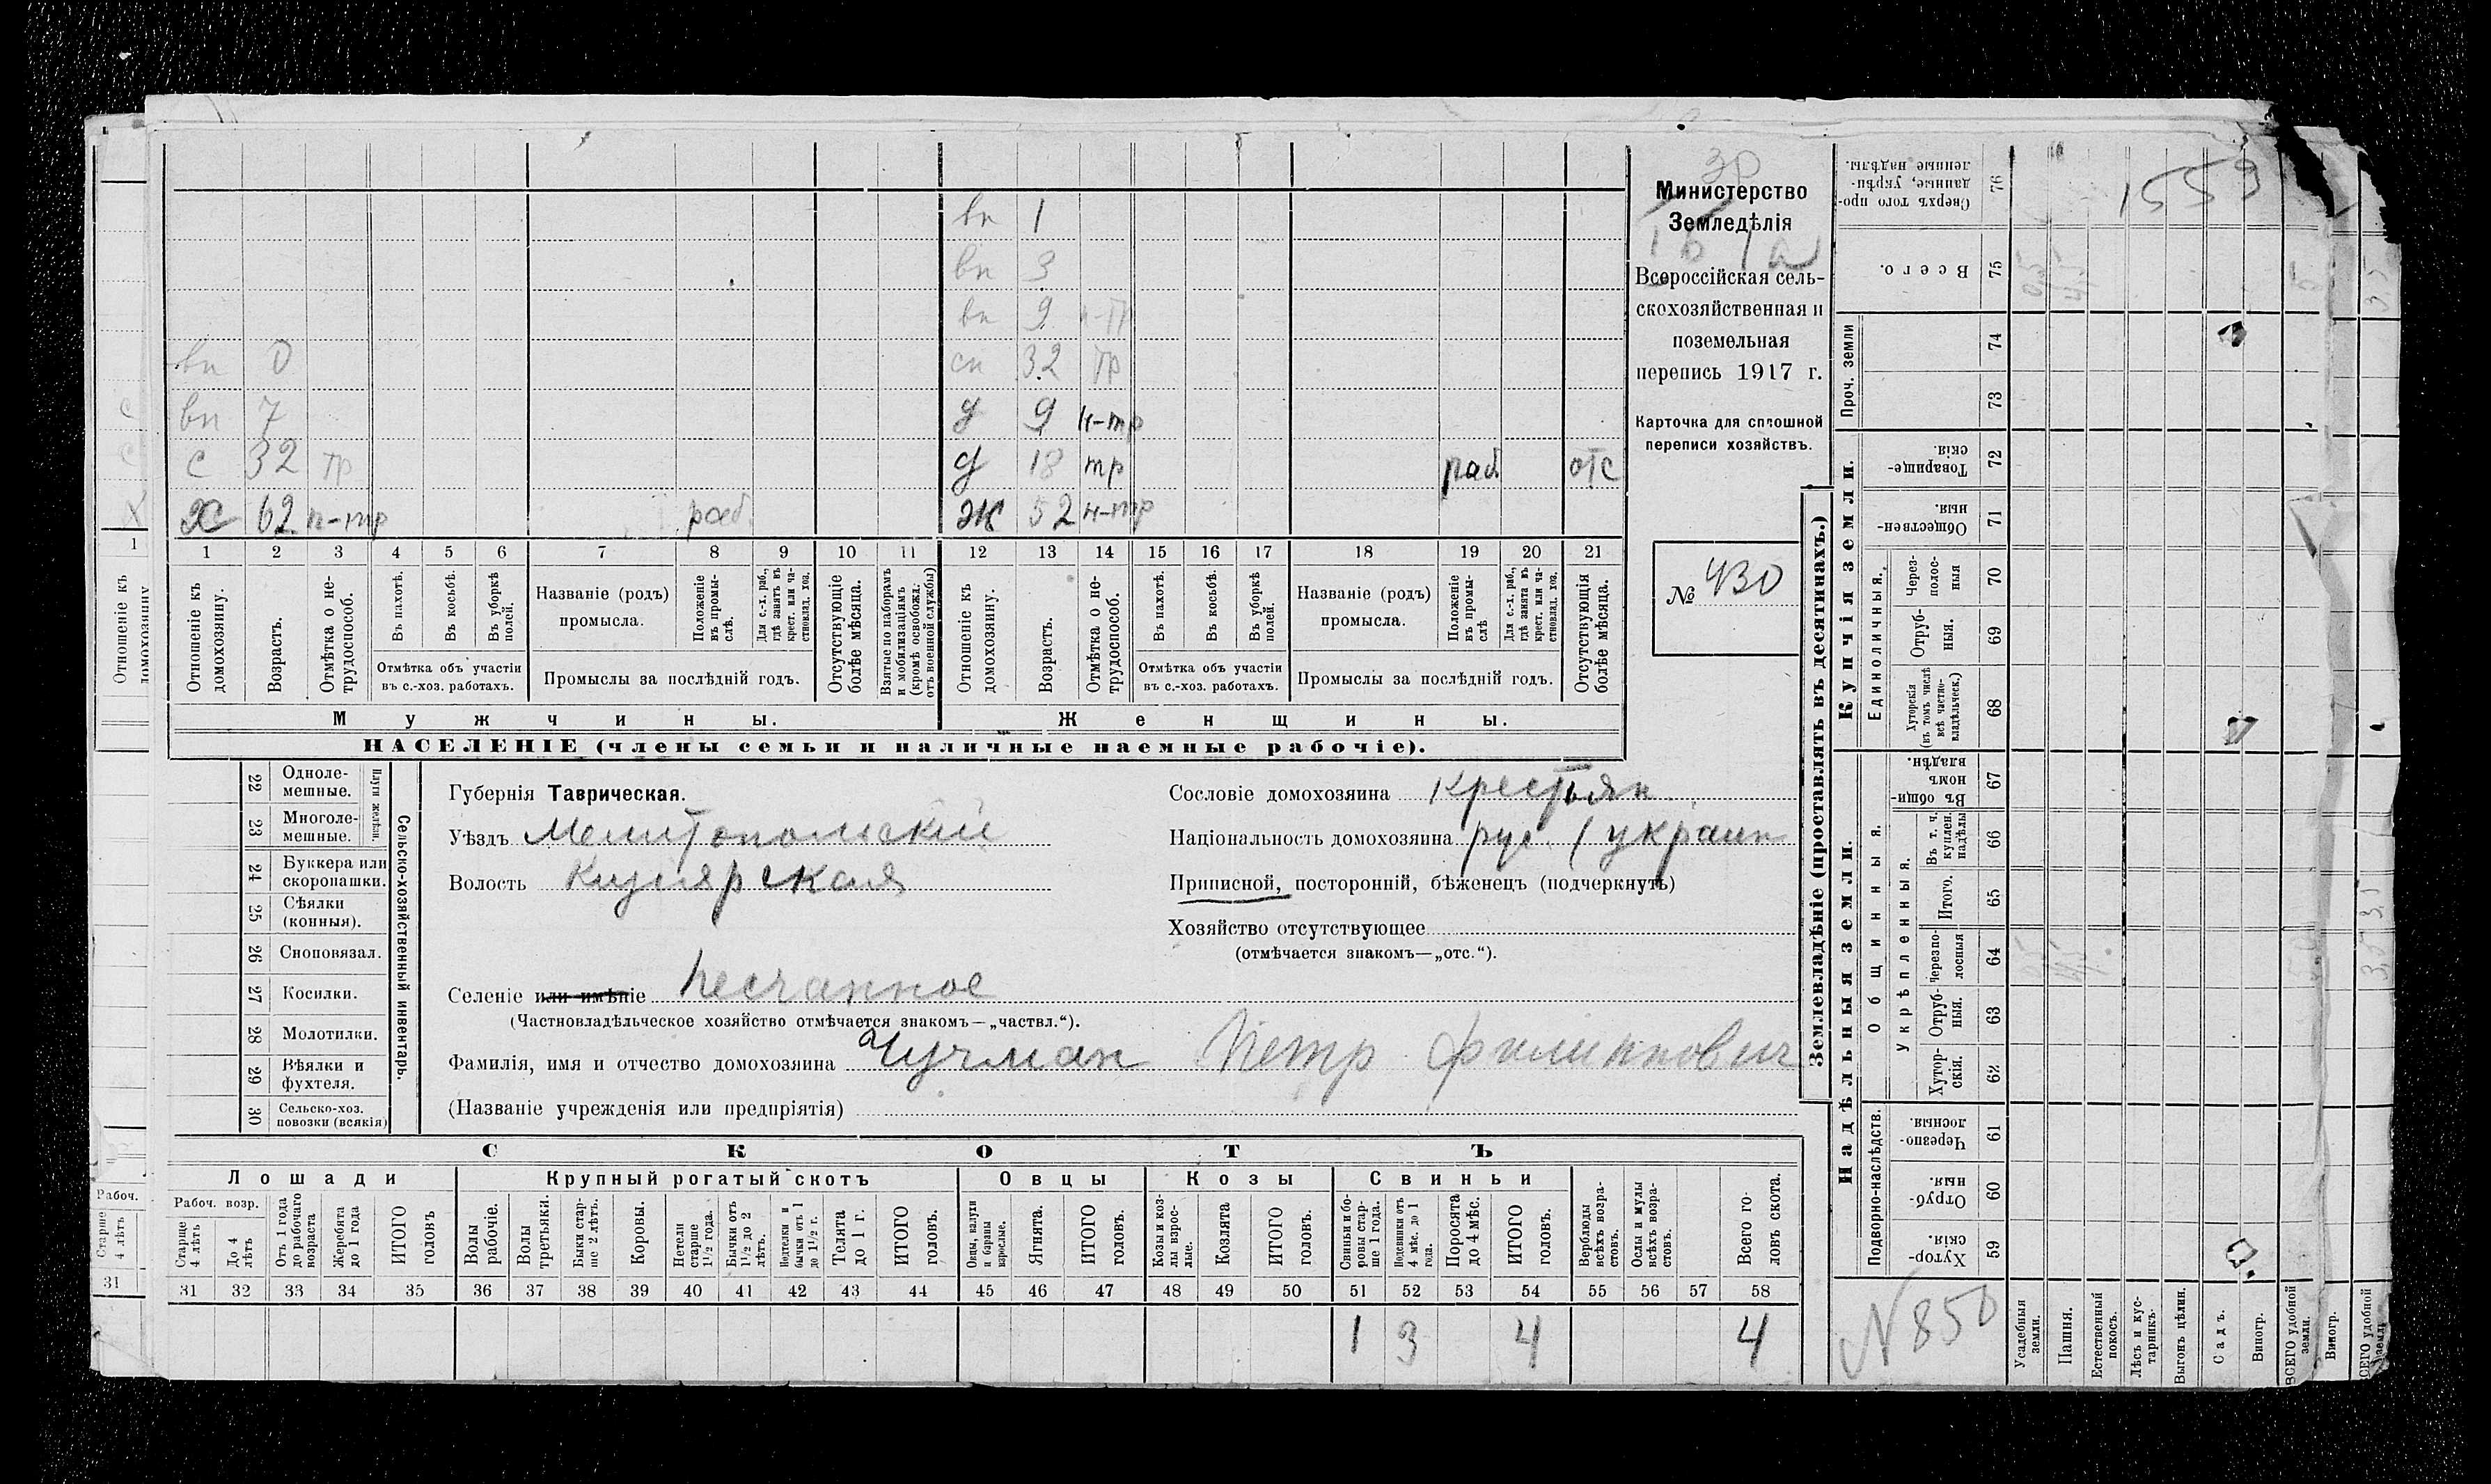 вп 1
вп 3
вп 9 н-тр
вп 0 сн 32 тр
вп 7 д 9 н-тр
с 32 тр д 18 тр раб отс
х 62 н-тр раб ж 52 н-тр
1 2 3 4 5 6 7 8 9 10 11 12 13 14 15 16 17 18 19 20 21
Отношеніе къ домохозяину.
Возрастъ.
Отмѣтка о не-трудоспособ.
Въ пахотѣ.
Въ косьбѣ.
Въ уборкѣ полей.
Отмѣтка объ участіи въ с.-хоз. работахъ.
Названіе (родъ) промысла.
Положеніе въ промы-слѣ.
Для с.-х. раб., гдѣ занятъ въ крест. или ча-стновлад. хоз.
Промыслы за послѣдній годъ.
Отсутствующіе болѣе мѣсяца.
Взятые по наборамъ и мобилизаціямъ (кромѣ освобожд. отъ военной службы)
Отношеніе къ домохозяину.
Возрастъ.
Отмѣтка о не-трудоспособ.
Въ пахотѣ.
Въ косьбѣ.
Въ уборкѣ полей.
Отмѣтка объ участіи въ с.-хоз. работахъ.
Названіе (родъ) промысла.
Положеніе въ промы-слѣ
Для с.-х. раб., гдѣ занята въ крест. или ча-стновлад. хоз.
Промыслы за послѣдній годъ.
Отсутствующія болѣе мѣсяца.
Мужчины. Женщины.
НАСЕЛЕНІЕ (члены семьи и наличные наемные рабочіе).
Министерство
Земледѣлія
Всероссійская сель-
скохозяйственная и
поземельная
перепись 1917 г.
Карточка для сплошной
переписи хозяйствъ.
№ 430
22 Одноле-мешные.
23 Многоле-мешные.
Плуги желѣзн.
24 Буккера или скоропашки.
25 Сѣялки (конныя).
26 Сноповязал.
27 Косилки.
28 Молотилки.
29 Вѣялки и фухтеля.
30 Сельско-хоз. повозки (всякія)
Сельско-хозяйственный инвентарь.
Губернія Таврическая.
Уѣздъ Мелитопольскій
Волость Кизіярская
Селеніе или имѣніе Песчанное
(Частновладѣльческое хозяйство отмѣчается знакомъ—„частвл.“).
Фамилія, имя и отчество домохозяина Чучман Петр Филиппович
(Названіе учрежденія или предпріятія)
Сословіе домохозяина крестьян.
Національность домохозяина рус. (украин
Приписной, посторонній, бѣженецъ (подчеркнуть)
Хозяйство отсутствующее
(отмѣчается знакомъ—„отс.“).
СКОТЪ
Лошади Крупный рогатый скотъ Овцы Козы Свиньи
Рабоч. возр.
Старше 4 лѣтъ
До 4 лѣтъ
Отъ 1 года до рабочаго возраста
Жеребята до 1 года
ИТОГО головъ
Волы рабочіе.
Волы третьяки.
Быки стар-ше 2 лѣтъ.
Коровы.
Нетели старше 1½ года.
Бычки отъ 1½ до 2 лѣтъ.
Подтелки и бычки отъ 1 до 1½ г.
Телята до 1 г.
ИТОГО головъ.
Овцы, валухи и бараны взрослые.
Ягнята.
ИТОГО головъ.
Козы и коз-лы взрос-лые.
Козлята
ИТОГО головъ.
Свиньи и бо-ровы стар-ше 1 года.
Подсвинки отъ 4 мѣс. до 1 года.
Поросята до 4 мѣс.
ИТОГО головъ.
Верблюды всѣхъ возра-стовъ.
Ослы и мулы всѣхъ возра-стовъ.
Всего го-ловъ скота.
31 32 33 34 35 36 37 38 39 40 41 42 43 44 45 46 47 48 49 50 51 52 53 54 55 56 57 58
1 3 4 4
Землевладѣніе (проставлять въ десятинахъ.)
Надѣльныя земли. Купчія земли. Проч. земли
Сверхъ того про-данные, укрѣп-ленные надѣлы. 76
Всего. 75
74
73
Товарище-скія 72
Обществен-ныя. 71
Единоличныя.
Через-полос-ныя 70
Отруб-ныя. 69
Хуторскія (въ томъ числѣ всѣ частно-владѣльческ.) 68
Общинныя.
Въ общи-номъ владѣн. 67
Укрѣпленныя.
Въ т. ч. куплен. надѣлы 66
Итого. 65
Черезпо-лосныя 64
Отруб-ныя. 63
Хутор-скія. 62
Подворно-наслѣдств.
Черезпо-лосныя. 61
Отруб-ныя. 60
Хутор-скія. 59
Усадебныя земли.
Пашня.
Естественный покосъ.
Лѣсъ и кус-тарникъ.
Выгонъ цѣлин.
Садъ.
Виногр.
ВСЕГО удобной земли.
1559
N 850
Отношеніе къ домохозяину
1
Рабоч.
Старше 4 лѣтъ
31
Виногр.